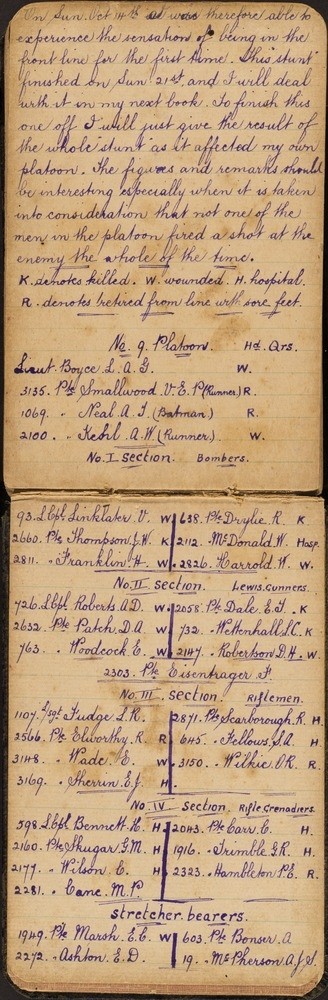 On Sun. Oct 14th I was therefore able to
experience the sensation of being in the
front line for the first time. This "stunt"
finished on Sun 21st, and I will deal
with it in my next book. To finish this
one off I will just give the result of
the whole "stunt" as it affected my own
platoon. The figures and remarks should
be interesting especially when it is taken
into consideration that not one of the
men in the platoon fired a shot at the
enemy the whole of the time.
K. denotes killed. W. wounded. H. hospital.
R. denotes retired from line with sore feet.
No. 9. Platoon. Hd. Qrs.
Lieut. Boyce. L. A. G. W.
3135. Pte Smallwood V. E. P (Runner) R.
1069. " Neal. A. J. (Batman.) R.
2100. " Kebil. A. W. (Runner.) W.
No. I section. Bombers.
93. L Cpl. Linklater V. W 638. Pte Drylie. R. K
2660. Pte Thompson. J. W. K 2112. McDonald. W. Hosp.
2811. " Franklin. H. W. 2826. Harrold. W. W.
No. II section. Lewis. Gunners.
726. L Cpl. Roberts A. D. W. 2058. Pte Dale. E. J. K
2632. Pte Patch. D. A. W 732. " Wettenhall S. C. K
763. " Woodcock E. W 2147. " Robertson D. H. W.
2303. Pte Eisentrager F.
No. III. section. Riflemen.
1107. L/Sgt Fudge L. R. 2871. Pte Scarborough. R. H
2566. Pte Elworthy. R. R 645. " Fellows. J. A. H
3148. " Wade. E. W 3150. " Wilkie. O. R. R.
3169. " Sherrin. E. J. H
No. IV section. Rifle Grenadiers.
598. L Cpl Bennett. H. H 2043. Pte Carr. C. H
2160. Pte Skugar G. M. H 1916. " Trimble. G. R. H
2177. " Wilson. C. H 2323. " Hambleton P. E. R.
2281. " Cane. M. P.
Stretcher bearers.
1949. Pte Marsh. E. C. W 603. Pte Bonser. A
2272. " Ashton. E. D. 19. " McPherson A. J. S.